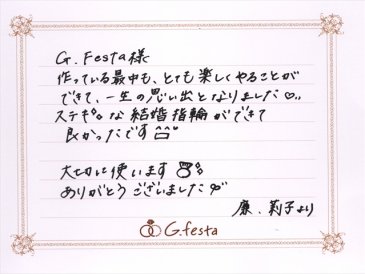 G.Festa様
作っている最中も、とても楽しくやることが
できて、一生の思い出となりました♡..
ステキな結婚指輪ができて
良かったです
大切に使います
ありがとうございました
康、莉子より
G.festa